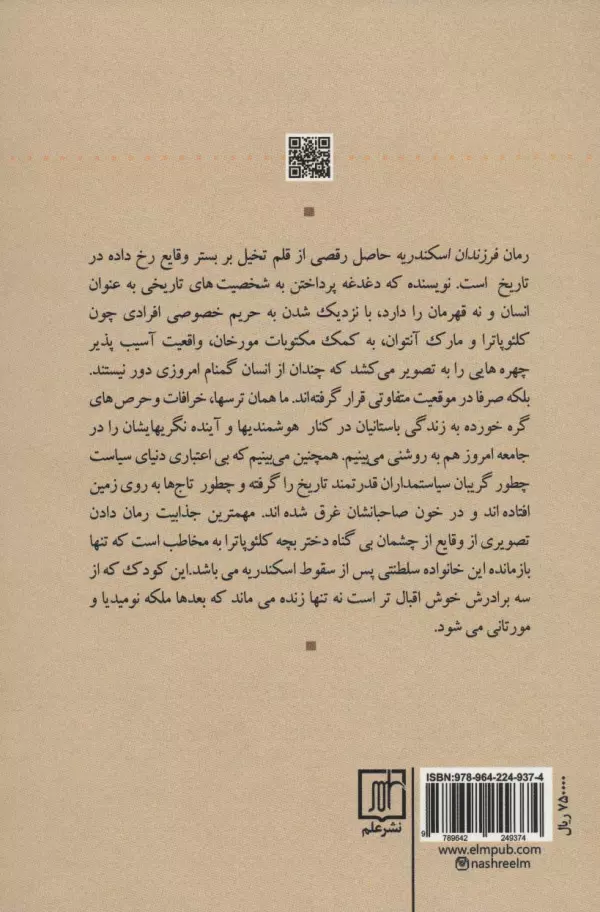 رمان فرزندان اسکندریه حاصل رقصی از قلم تخیل بر بستر وقایع رخ داده در
تاریخ است. نویسنده که دغدغه پرداختن به شخصیت های تاریخی به عنوان
انسان و نه قهرمان را دارد، با نزدیک شدن به حریم خصوصی افرادی چون
کلئوپاترا و مارک آنتوان، به کمک مکتوبات مورخان، واقعیت آسیب پذیر
چهره هایی را به تصویر می‌کشد که چندان از انسان گمنام امروزی دور نیستند.
بلکه صرفا در موقعیت متفاوتی قرار گرفته‌اند. ما همان ترسها، خرافات وحرص‌های
گره خورده به زندگی باستانیان در کنار هوشمندیها و آینده نگریهایشان را در
جامعه امروز هم به روشنی می‌بینیم. همچنین می‌بینیم که بی اعتباری دنیای سیاست
چطور گریبان سیاستمداران قدرتمند تاریخ را گرفته و چطور تاج‌ها به روی زمین
افتاده اند و در خون صاحبانشان غرق شده اند. مهمترین جذابیت رمان دادن
تصویری از وقایع از چشمان بی گناه دختر بچه کلئوپاترا به مخاطب است که تنها
بازمانده این خانواده سلطنتی پس از سقوط اسکندریه می باشد.این کودک که از
سه برادرش خوش اقبال تر است نه تنها زنده می ماند که بعدها ملکه نومیدیا و
مورتانی می شود.
نشرعلم
ISBN:978-964-224-937-4
9 789642 249374
www.elmpub.com
nashreelm
۷۵۰۰۰۰ ریال